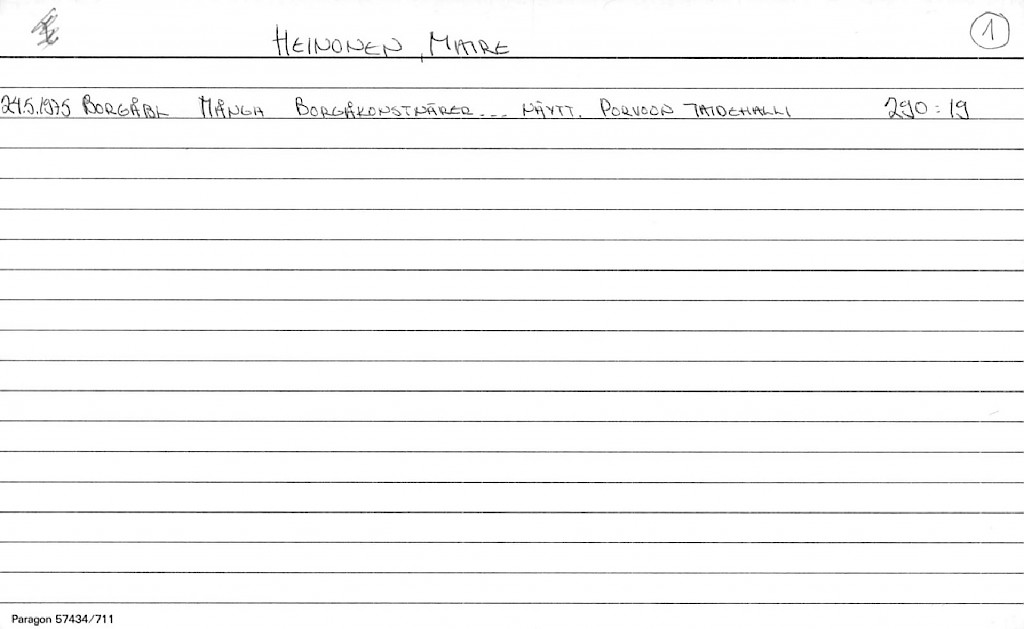 HEINONEN, MAIRE
1
24.5.1975 BORGÅBL MÅNGA BORGÅKONSTNÄRER... NÄYTT. PORVOON TAIDEHALLI 290:19
Paragon 57434/711